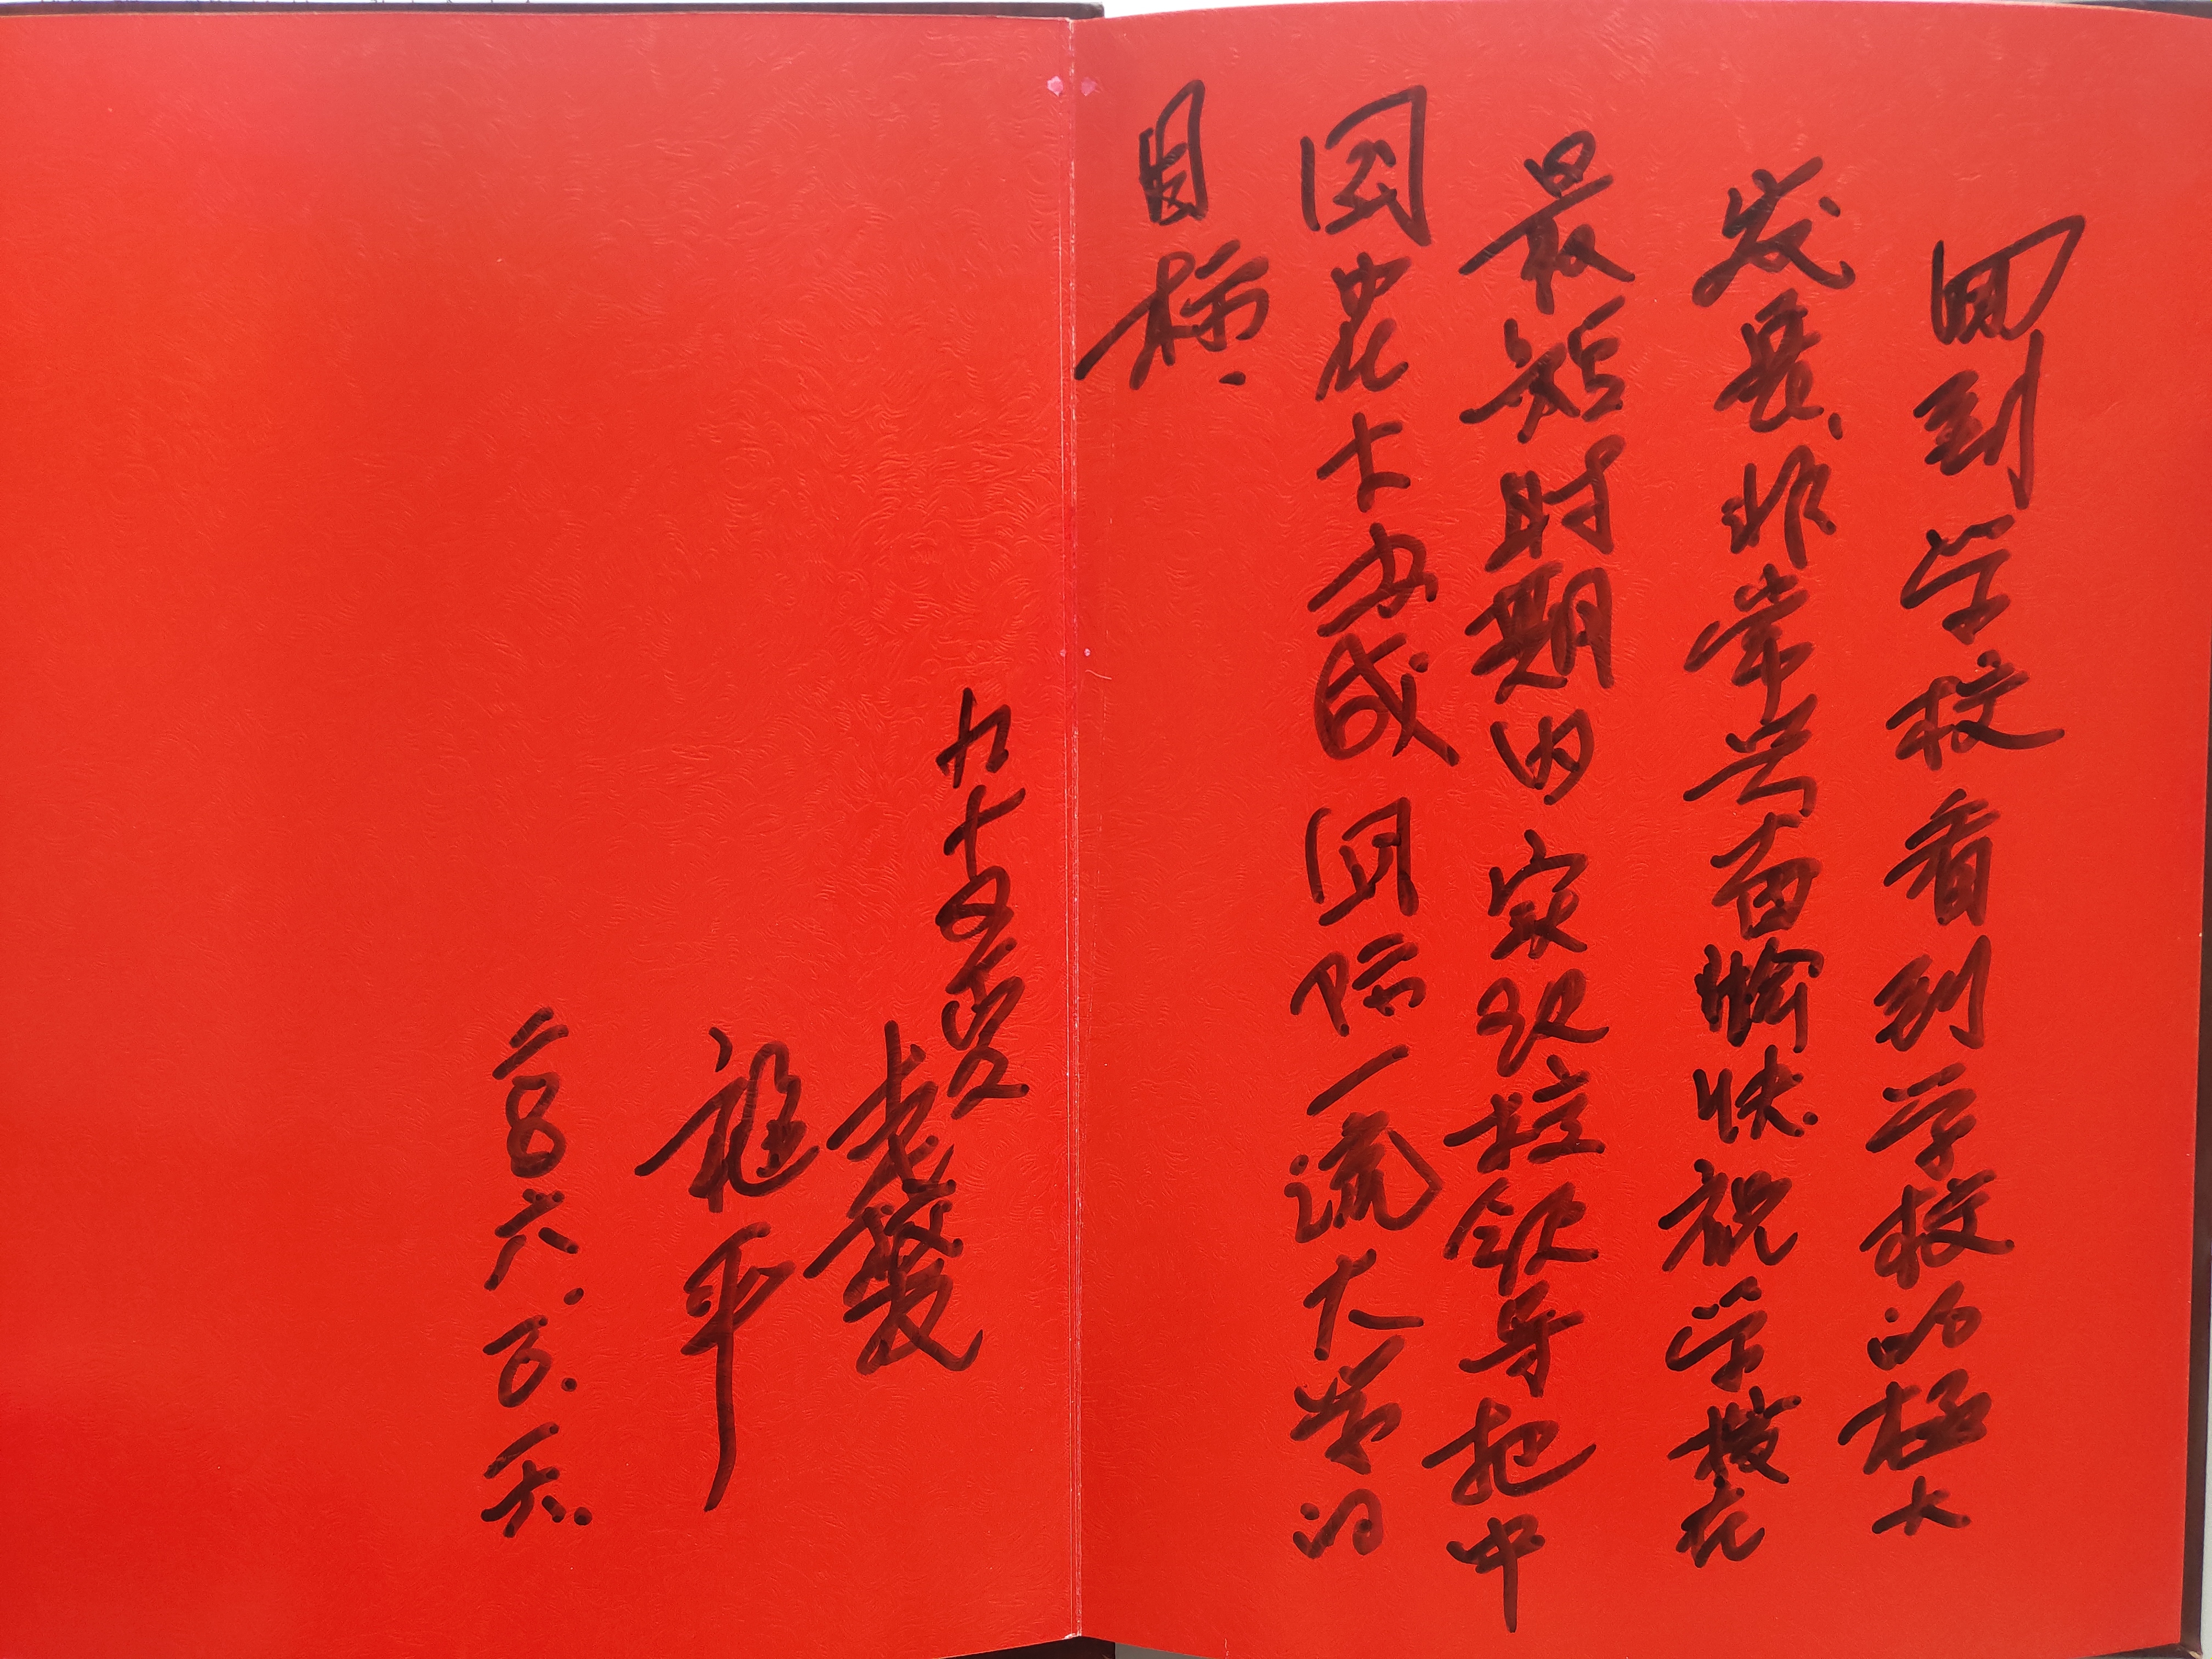 回到学校看到学校的极大
发展、非常兴奋愉快.祝学校在
最短时期内实现校领导把中
国农大办成国际一流大学的
目标.
九十四叟
平
二〇〇六.五.